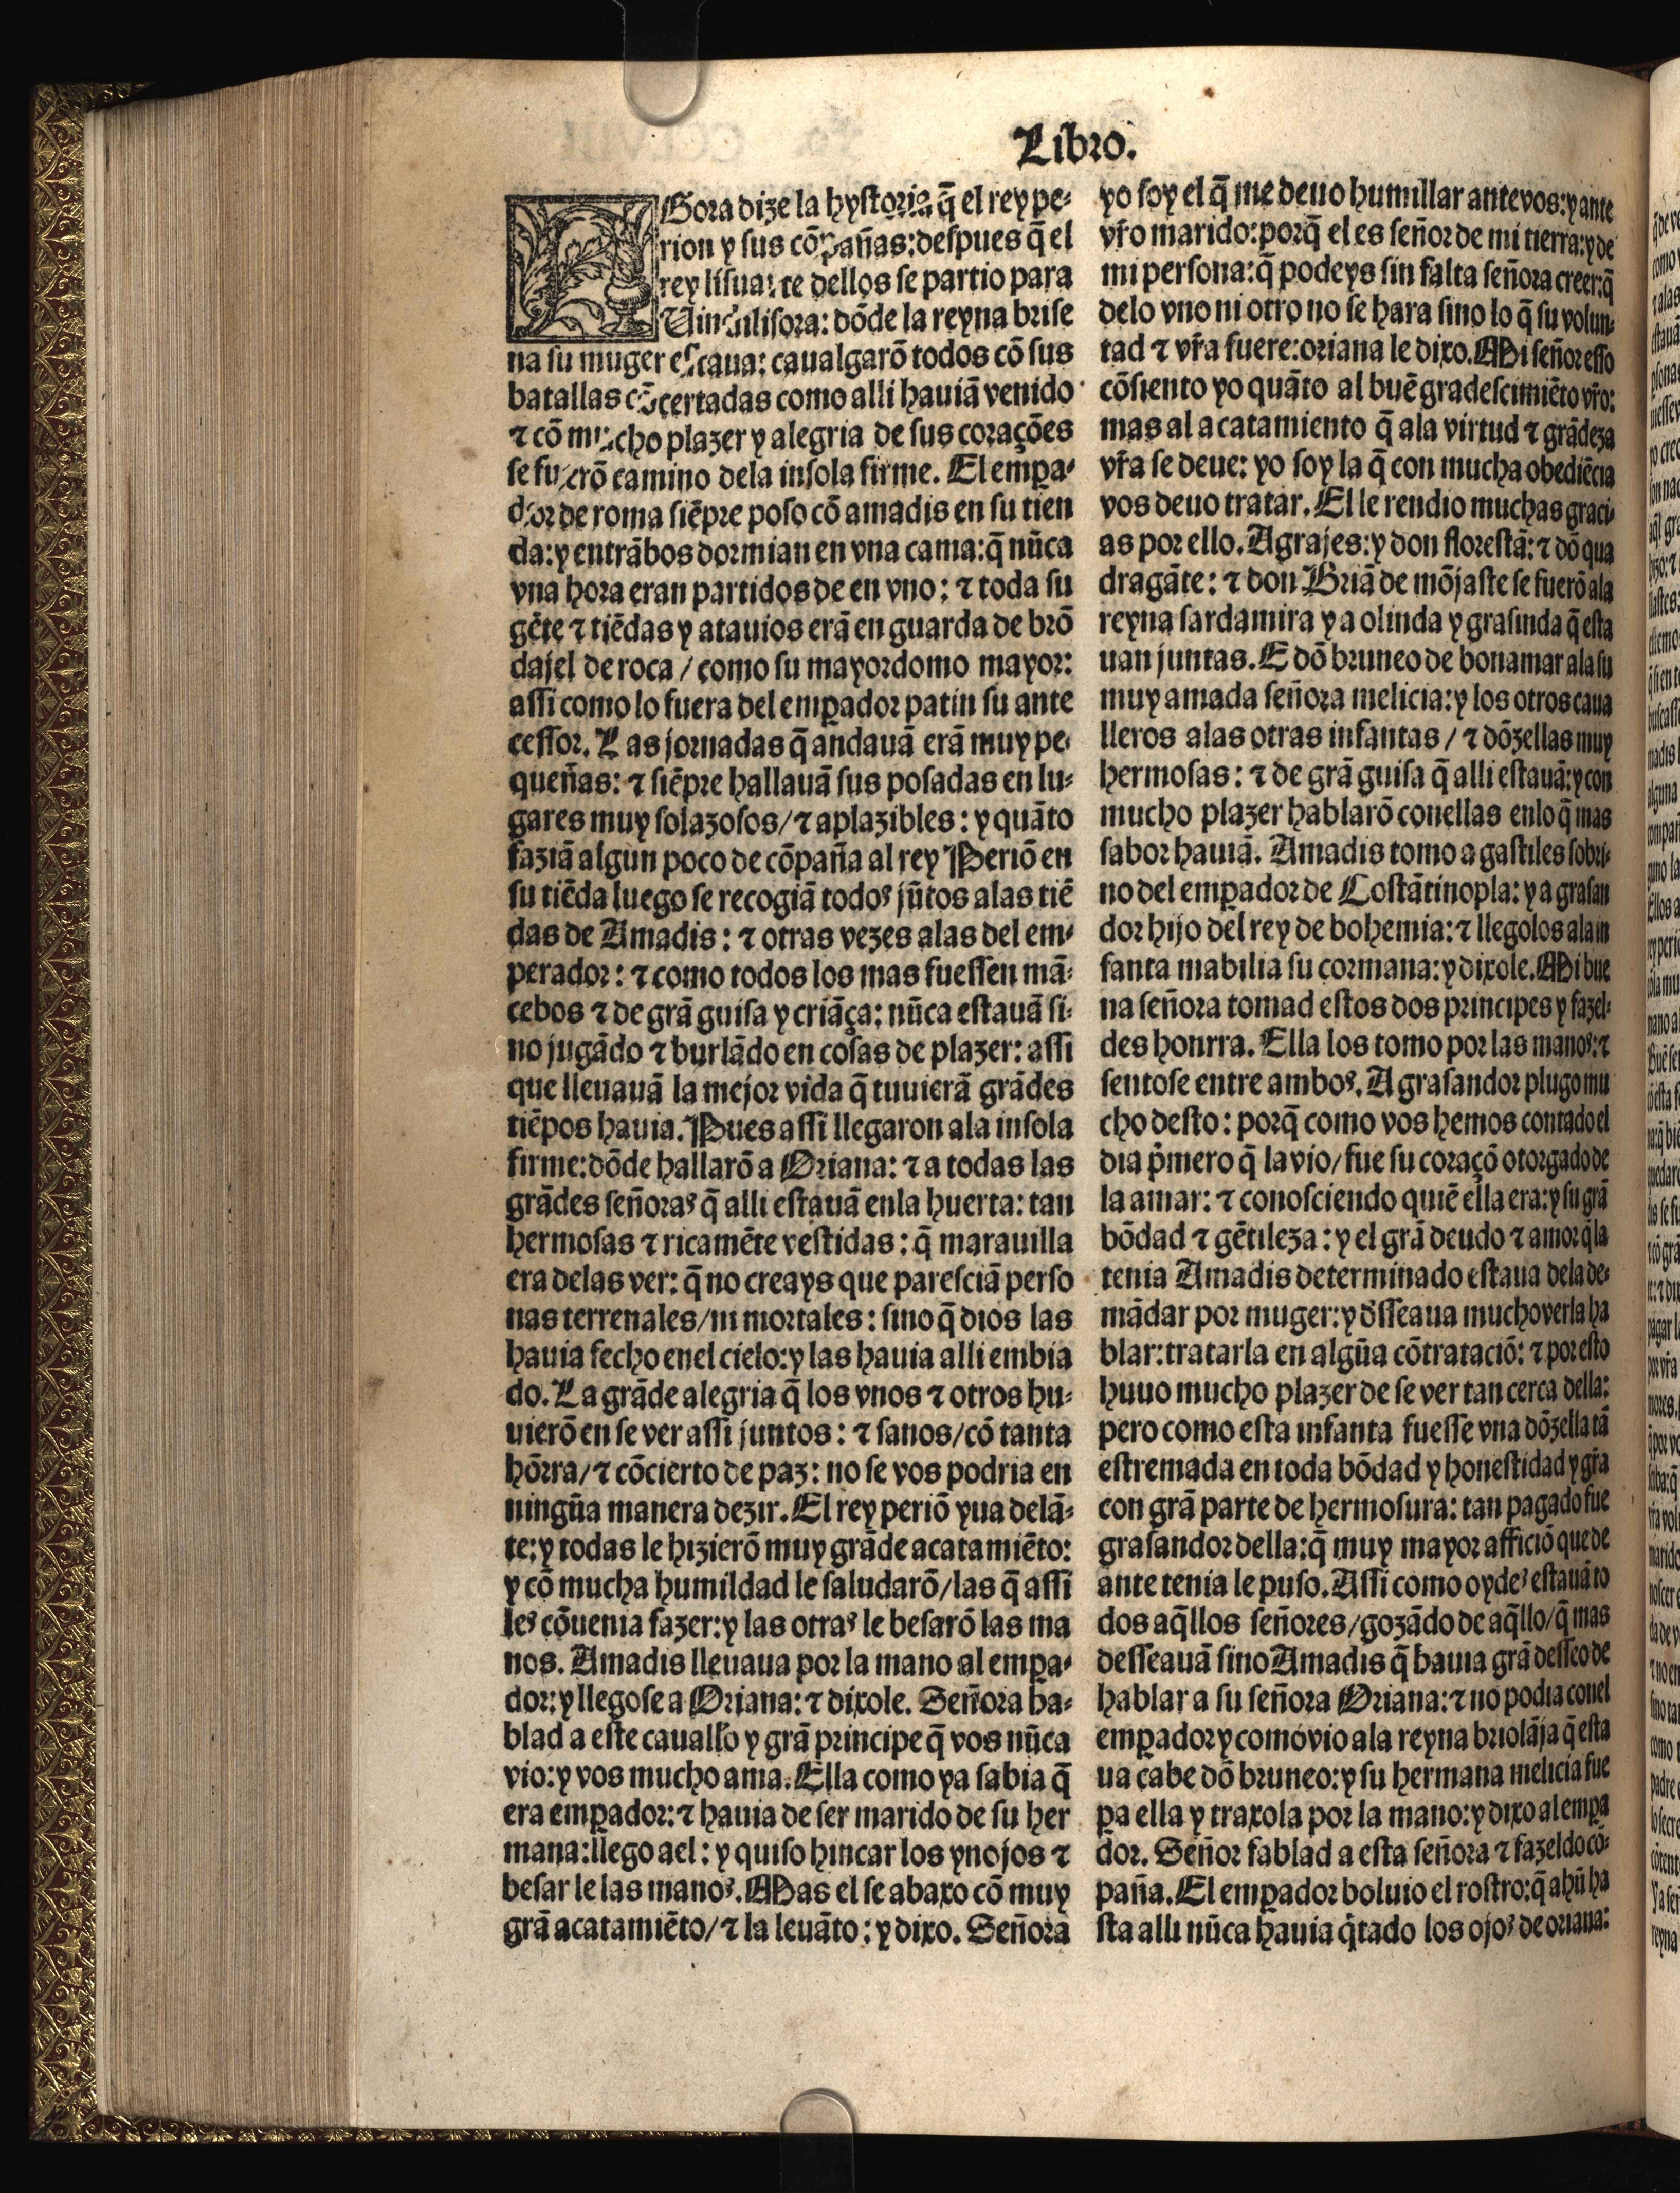 Libro.
AGora dize la hystoria q̃ el rey pe-
rion y sus cõpañas: despues q̃ el
rey lisuarte dellos se partio para
Uindilisora: dõde la reyna brise
na su muger estaua: caualgarõ todos cõ sus
batallas cõcertadas como alli hauiã venido
⁊ cõ mucho plazer y alegria de sus corações
se fuerõ camino dela insola firme. El emꝑa-
dor de roma siẽpre poso cõ amadis en su tien
da: y entrãbos dormian en vna cama: q̃ nũca
vna hora eran partidos de en vno: ⁊ toda su
gẽte ⁊ tiẽdas y atauios erã en guarda de brõ
dajel de roca / como su mayordomo mayor:
assi como lo fuera del emꝑador patin su ante
cessor. Las jornadas q̃ andauã erã muy pe-
queñas: ⁊ siẽpre hallauã sus posadas en lu-
gares muy solazosos/ ⁊ aplazibles: y quãto
faziã algun poco de cõpaña al rey Periõ en
su tiẽda luego se recogiã todoˢ jũtos alas tiẽ
das de Amadis: ⁊ otras vezes alas del em-
perador: ⁊ como todos los mas fuessen mã-
cebos ⁊ de grã guisa y criãça: nũca estauã si-
no jugãdo ⁊ burlãdo en cosas de plazer: assi
que lleuauã la mejor vida q̃ tuuierã grãdes
tiẽpos hauia. Pues assi llegaron ala insola
firme: dõde hallarõ a Oriana: ⁊ a todas las
grãdes señoraˢ q̃ alli estauã enla huerta: tan
hermosas ⁊ ricamẽte vestidas: q̃ marauilla
era delas ver: q̃ no creays que paresciã perso
nas terrenales/ ni mortales: sino q̃ dios las
hauia fecho enel cielo: y las hauia alli embia
do. La grãde alegria q̃ los vnos ⁊ otros hu-
uierõ en se ver assi juntos: ⁊ sanos/ cõ tanta
hõrra/ ⁊ cõcierto de paz: no se vos podria en
ningũa manera dezir. El rey periõ yua delã-
te: y todas le hizierõ muy grãde acatamiẽto:
y cõ mucha humildad le saludarõ/ las q̃ assi
leˢ cõuenia fazer: y las otraˢ le besarõ las ma
nos. Amadis lleuaua por la mano al emꝑa-
dor: y llegose a Oriana: ⁊ dixole. Señora ha-
blad a este cauallo͂ y grã principe q̃ vos nũca
vio: y vos mucho ama. Ella como ya sabia q̃
era emꝑador: ⁊ hauia de ser marido de su her
mana: llego ael: y quiso hincar los ynojos ⁊
besar le las manoˢ. Mas el se abaxo cõ muy
grã acatamiẽto/ ⁊ la leuãto: y dixo. Señora
yo soy el q̃ me deuo humillar antevos: y ante
vr̃o marido: porq̃ el es señor de mi tierra: y de
mi persona: q̃ podeys sin falta señora creer: q̃
delo vno ni otro no se hara sino lo q̃ su volun-
tad ⁊ vr̃a fuere: oriana le dixo. Mi señor esso
cõsiento yo quãto al buẽ gradescimiẽto vr̃o:
mas al acatamiento q̃ ala virtud ⁊ grãdeza
vr̃a se deue: yo soy la q̃ con mucha obediẽcia
vos deuo tratar. El le rendio muchas graci-
as por ello. Agrajes: y don florestã: ⁊ dõ qua
dragãte: ⁊ don Briã de mõjaste se fuerõ ala
reyna sardamira y a olinda y grasinda q̃ esta
uan juntas. E dõ bruneo de bonamar ala su
muy amada señora melicia: y los otros caua
lleros alas otras infantas/ ⁊ dõzellas muy
hermosas: ⁊ de grã guisa q̃ alli estauã: y con
mucho plazer hablarõ conellas enlo q̃ mas
sabor hauiã. Amadis tomo a gastiles sobri-
no del emꝑador de Costãtinopla: y a grasan
dor hijo del rey de bohemia: ⁊ llegolos ala in
fanta mabilia su cormana: y dixole. Mi bue
na señora tomad estos dos principes y fazel-
des honrra. Ella los tomo por las manoˢ: ⁊
sentose entre amboˢ. A grasandor plugo mu
cho desto: porq̃ como vos hemos contado el
dia p̃mero q̃ la vio/ fue su coraçõ otorgado de
la amar: ⁊ conosciendo quiẽ ella era: y su grã
bõdad ⁊ gẽtileza: y el grã deudo ⁊ amor q̃ la
tenia Amadis determinado estaua dela de-
mãdar por muger: y d̃sseaua mucho verla ha
blar: tratarla en algũa cõtrataciõ: ⁊ por esto
huuo mucho plazer de se ver tan cerca della:
pero como esta infanta fuesse vna dõzella tã
estremada en toda bõdad y honestidad y gr̃a
con grã parte de hermosura: tan pagado fue
grasandor della: q̃ muy mayor afficiõ que de
ante tenia le puso. Assi como oydeˢ estauã to
dos aq̃llos señores/ gozãdo de aq̃llo/ q̃ mas
desseauã sino Amadis q̃ hauia grã desseo de
hablar a su señora Oriana: ⁊ no podia conel
emꝑador y como vio ala reyna briolãja q̃ esta
ua cabe dõ bruneo: y su hermana melicia fue
ꝑa ella y traxola por la mano: y dixo al emꝑa
dor. Señor fablad a esta señora ⁊ fazeldo cõ-
paña. El emꝑador boluio el rostro: q̃ ahũ ha
sta alli nũca hauia q̃tado los ojoˢ de oriana: